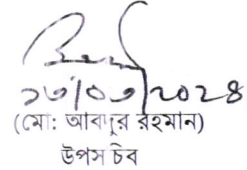 ১৩/০৩/২০২৪
(মো: আবদুর রহমান)
উপসচিব